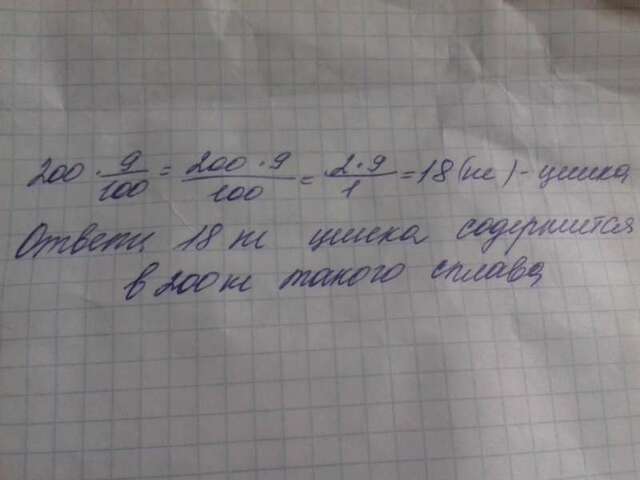 200 · 9/100 = 200 · 9/100 = 2 · 9/1 = 18 (кг) - цинка
Ответ: 18 кг цинка содержится
в 200 кг такого сплава